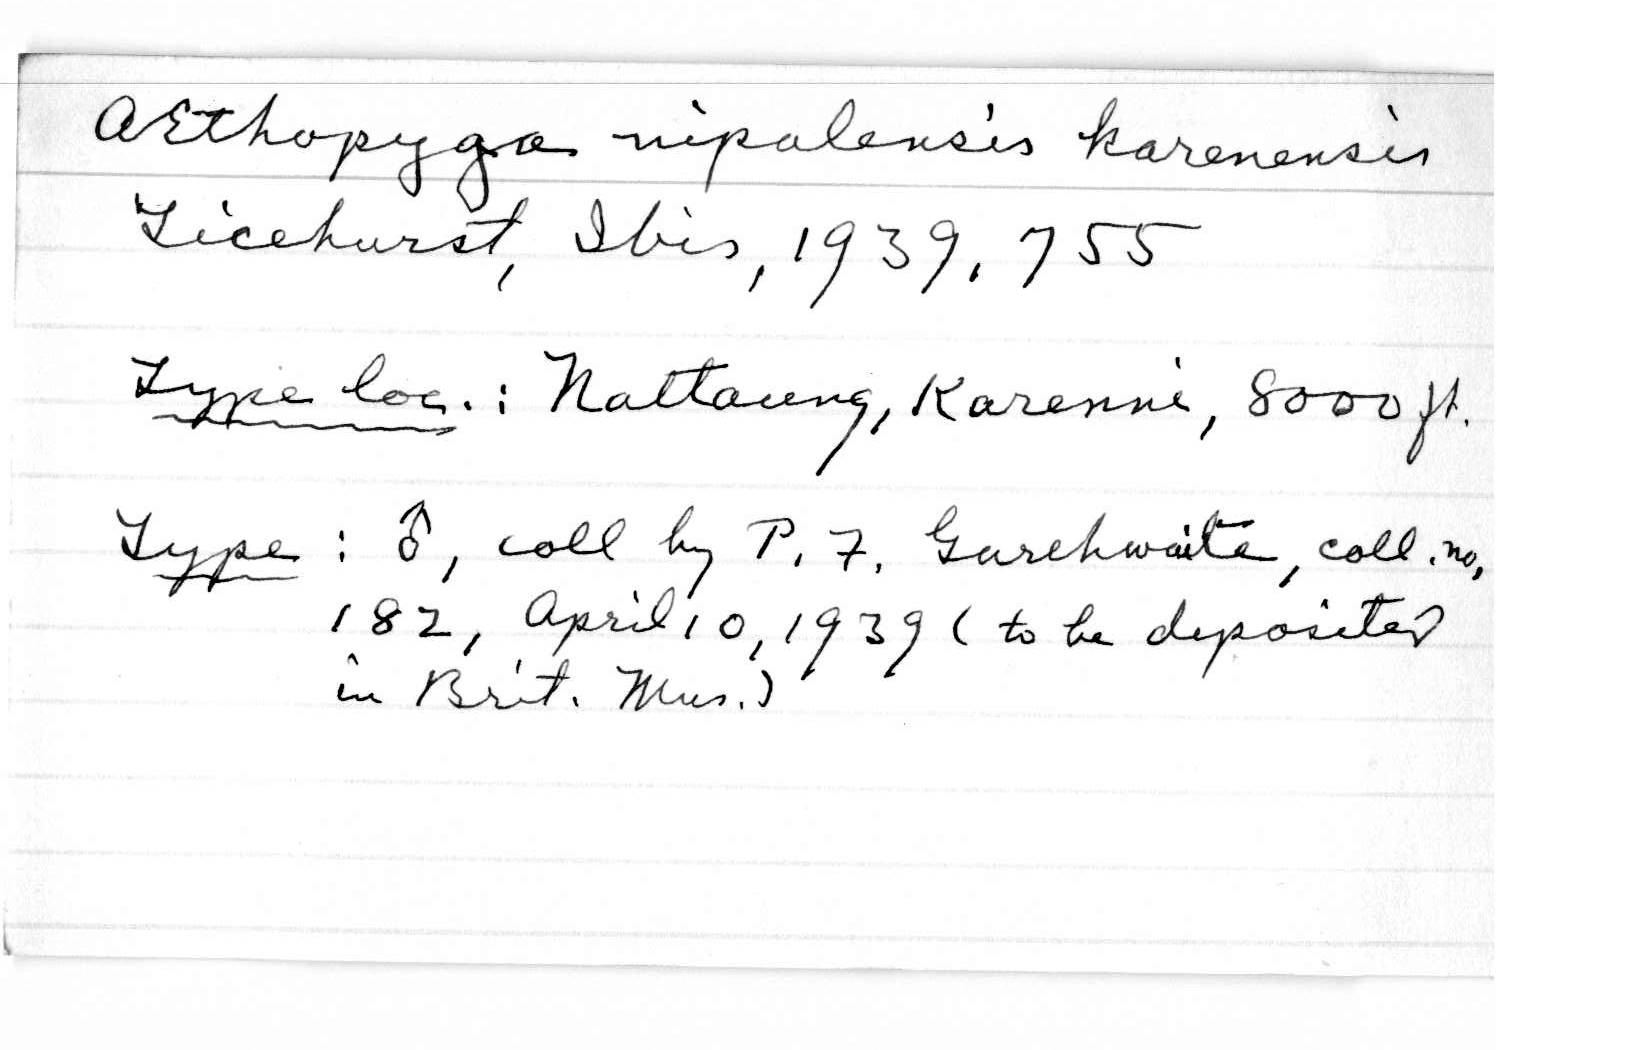 AEthopyga nipalensis karenensis
Ticehurst, Ibis, 1939, 755
Type loc. : Nattaung, Karenni, 8000 ft.
Type : ♂, coll by P. F. Garthwaite, coll. no,
182, April 10, 1939 (to be deposited
in Brit. Mus.)